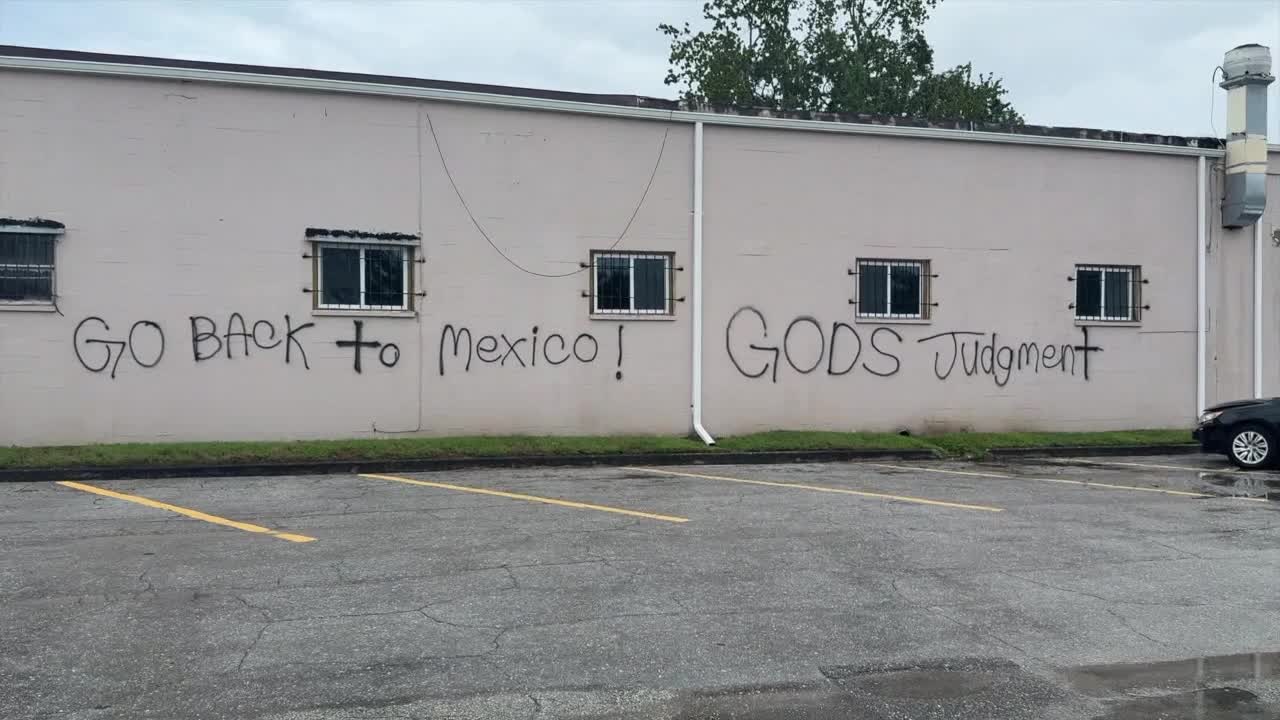 GO BACK to Mexico!
GODS Judgment